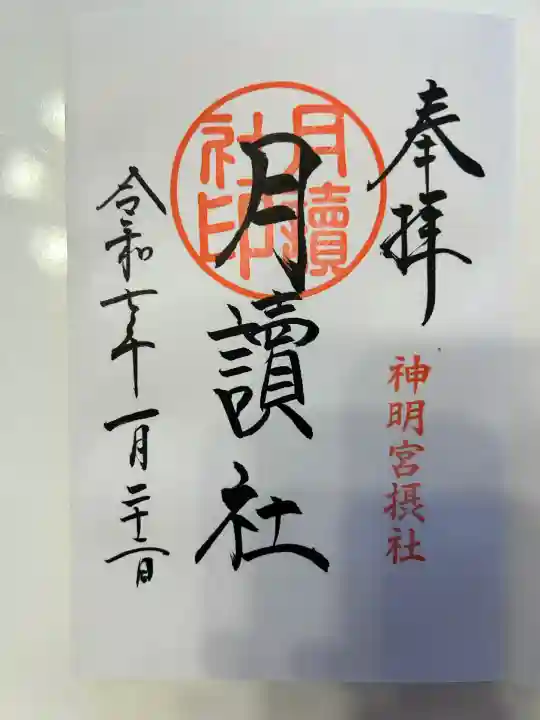 奉拝
神明宮摂社
月讀社
月讀
社印
令和七年一月二十二日